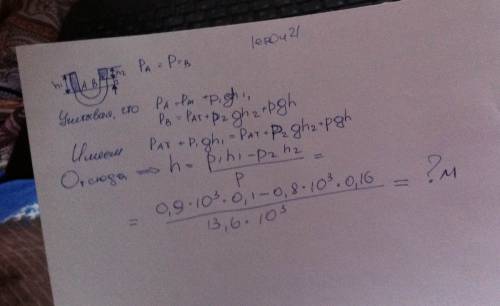 h₁ A B h₂ h P_A = P_B
Учитывая, что P_A = P_ат + ρ₁gh₁,
P_B = P_ат + ρ₂gh₂ + ρgh
Имеем P_ат + ρ₁gh₁ = P_ат + ρ₂gh₂ + ρgh
Отсюда ⟹ h = (ρ₁h₁ − ρ₂h₂) / ρ =
= (0,9 · 10³ · 0,1 − 0,8 · 10³ · 0,16) / (13,6 · 10³) = ? м